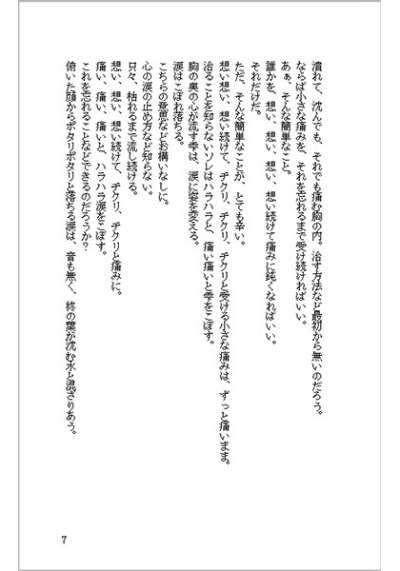 潰れて、沈んでも、それでも痛む胸の内。治す方法など最初から無いのだろう。
ならば小さな痛みを、それを忘れるまで受け続ければいい。
あぁ、そんな簡単なこと。
誰かを、想い、想い、想い、想い続けて痛みに鈍くなればいい。
それだけだ。
ただ、そんな簡単なことが、とても辛い。
想い想い、想い続けて、チクリ、チクリ、チクリと受ける小さな痛みは、ずっと痛いまま。
治ることを知らないソレはハラハラと、痛い痛いと雫をこぼす。
胸の奥の心が流す雫は、涙に姿を変える。
涙はこぼれ落ちる。
こちらの意思などお構いなしに。
心の涙の止め方など知らない。
只々、枯れるまで流し続ける。
想い、想い、想い続けて、チクリ、チクリと痛みに。
痛い、痛い、痛いと、ハラハラ涙をこぼす。
これを忘れることなどできるのだろうか？
俯いた顔からポタリポタリと落ちる涙は、音も無く、柊の葉が沈む水と混ざりあう。
7